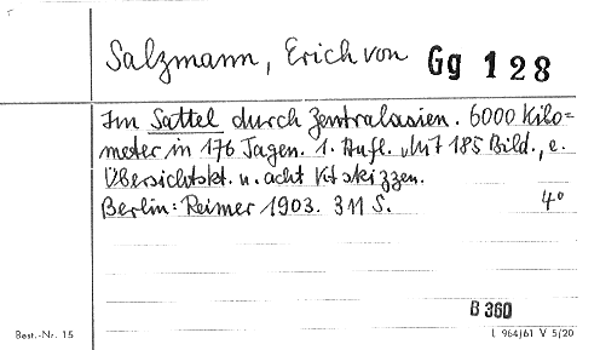 Salzmann, Erich von Gg 128
Im Sattel durch Zentralasien. 6000 Kilo=
meter in 176 Tagen. 1. Aufl. Mit 185 Bild., e.
Übersichtskt. u. acht Ktskizzen.
Berlin: Reimer 1903. 311 S. 4°
B 360
Best.-Nr. 15 L 964/61 V 5/20